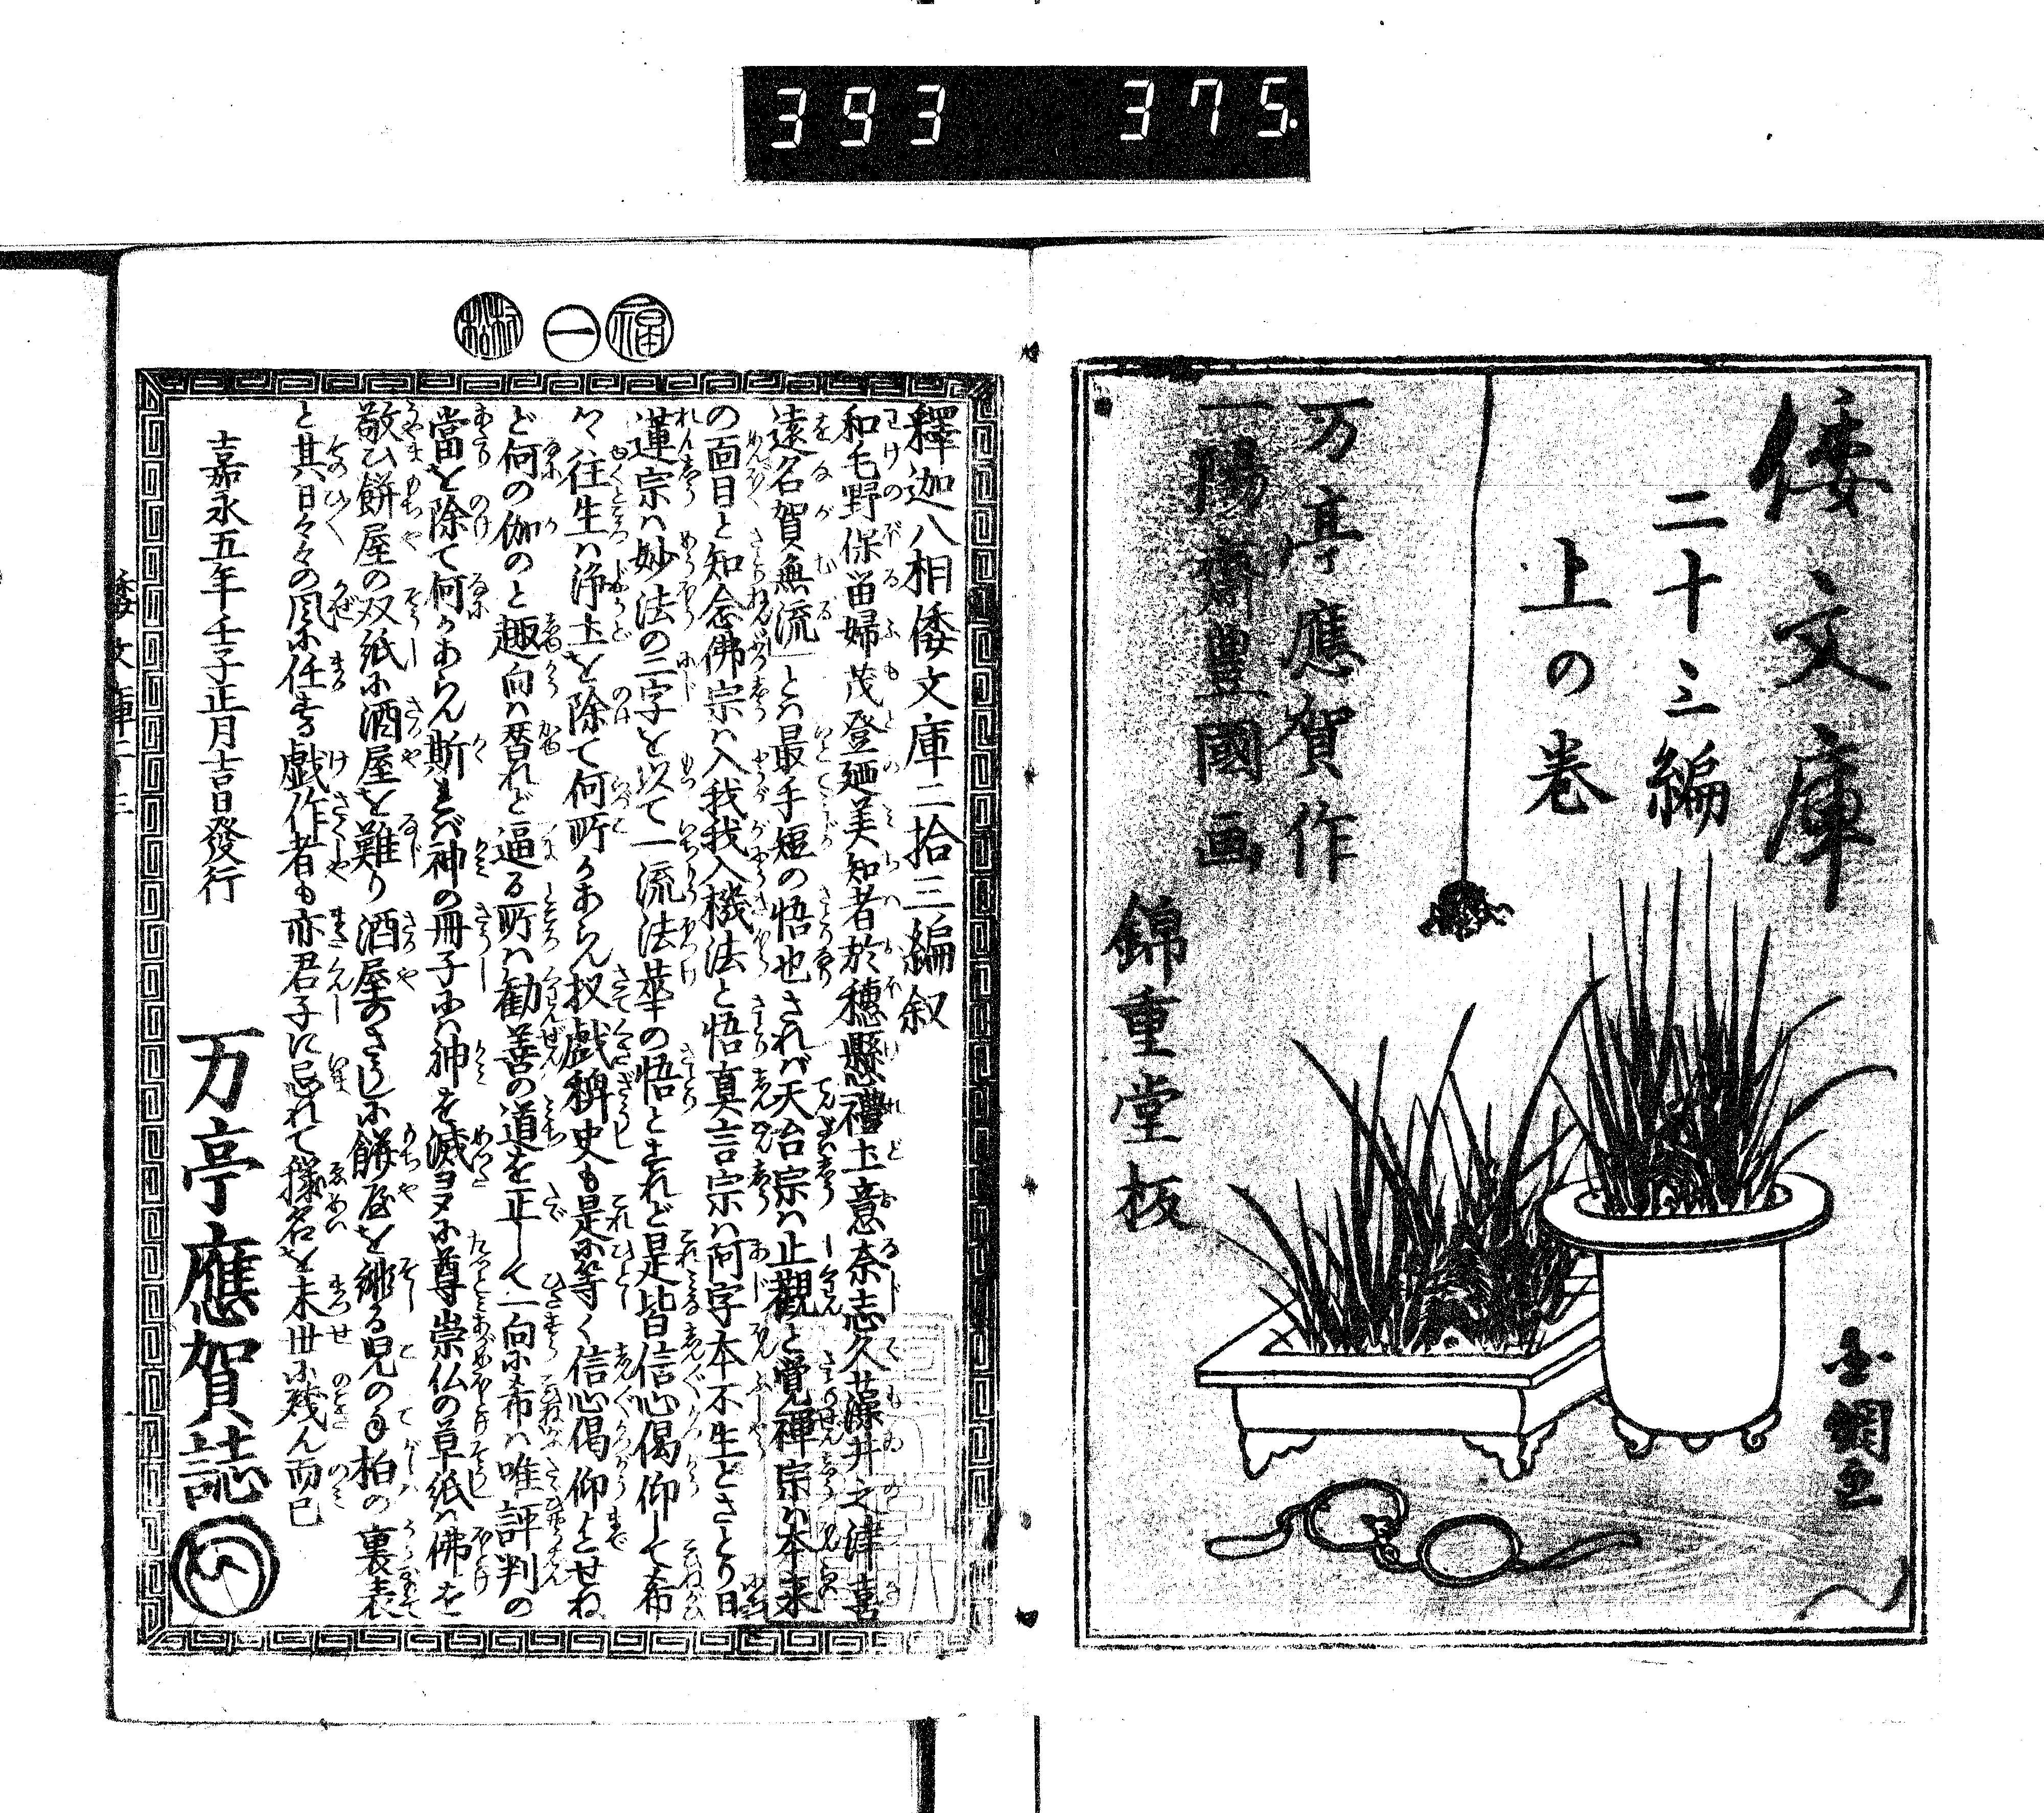 393 375.
倭文庫
二十三編
上の巻
万亭應賀作
一陽齋豊國画
錦重堂板
福
一
釋迦八相倭文庫二拾三編叙
和毛野保留婦茂登廼美知者於穂懸禮土意奈志久藻井之津喜
遠名賀無流」とハ最手短の悟也されバ天台宗ハ止觀と覚禅宗ハ本来
の面目と知念佛宗ハ入我我入機法と悟真言宗ハ阿字本不生どさとり日
蓮宗ハ妙法の二字を以て一流法華の悟とすれど是皆信心偈仰して希
ハ往生ハ浄土を除て何所かあらん扨戯稗史も是に等く信心偈仰はせね
ど何の伽のと趣向ハ替れど逼る所ハ勧善の道を正しく一向に希ハ唯評判の
當を除て何かあらん斯すれバ神の冊子にハ神を滅ヨヌに尊崇仏の草紙ハ佛を
敬ひ餅屋の双紙に酒屋を難り酒屋のさうしに餅屋を謗る児の手柏の裏表
と其日々々の風に任する戯作者も亦君子に忌れて穢名を末世に残ん而已
嘉永五年壬子正月吉日發行
万亭應賀誌
倭文庫二十三